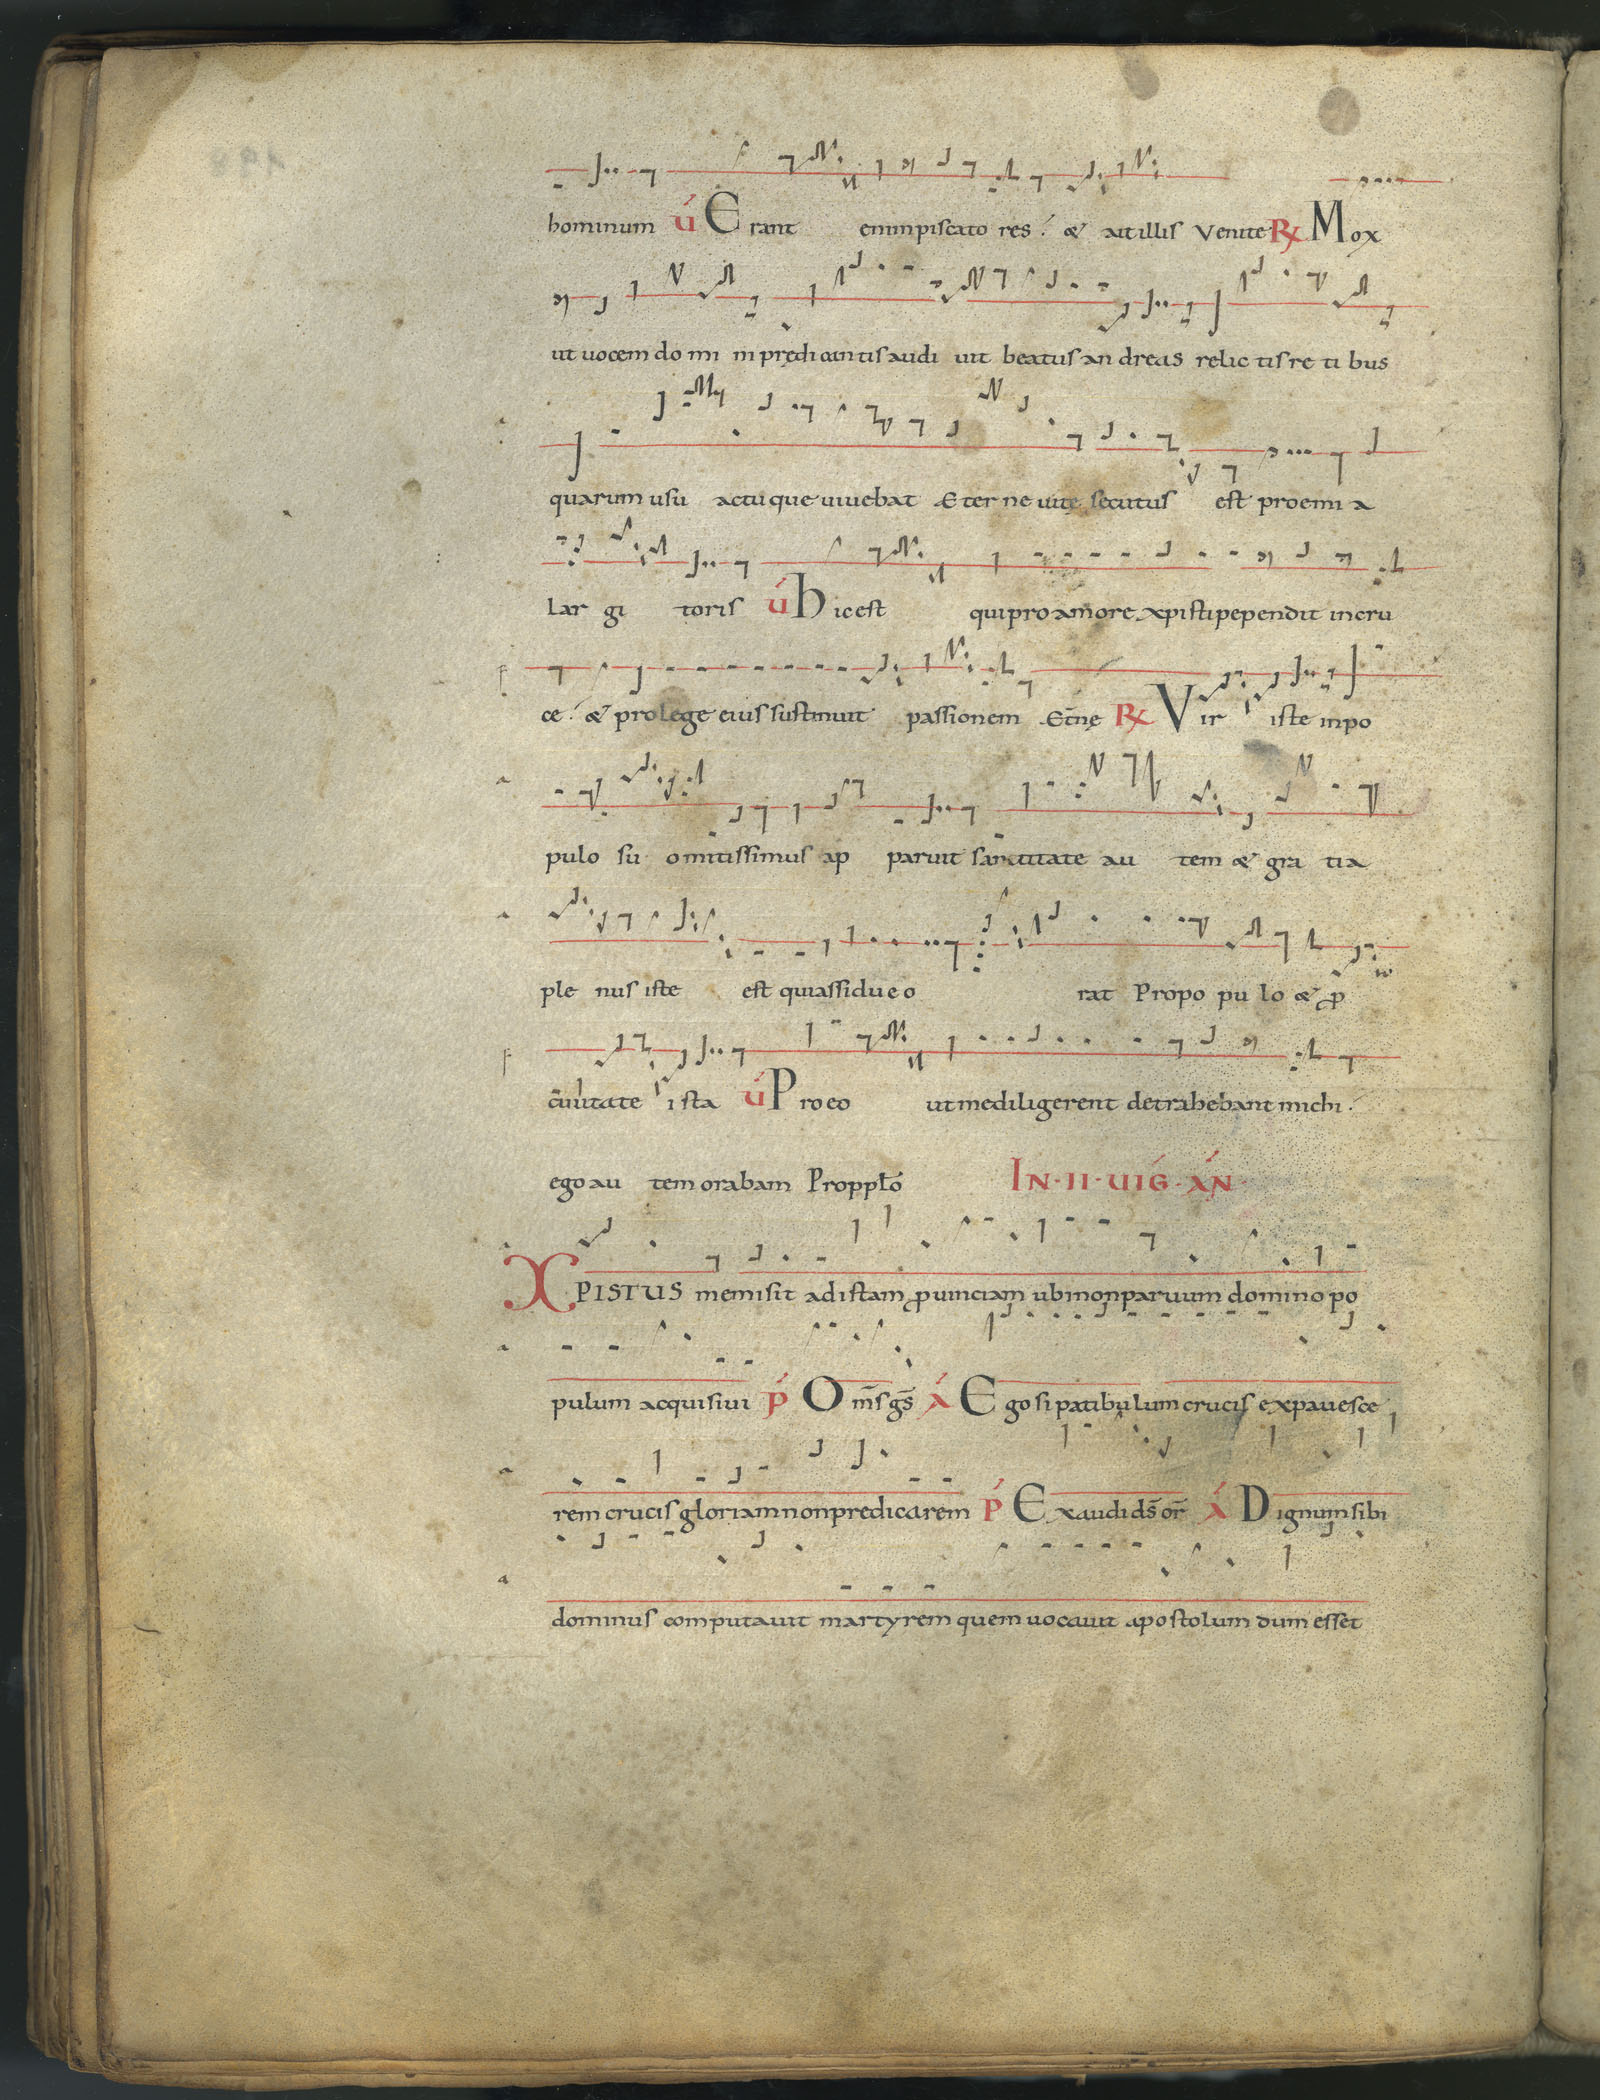 hominum v́ Erant enim piscatores. & ait illis Venite R̷ Mox
ut uocem domini predicantis audiuit beatus andreas relictis retibus
quarum usu actuque uiuebat Æterne uitę secutus est proemia
Largitoris v́ Hic est qui pro amore xpisti pependit in cru
ce. & pro lege eius sustinuit passionem Et̄nę R̷ Vir iste in po
pulo suo mitissimus apparuit sanctitate autem & gratia
plenus iste est qui assidue orat Pro populo & ꝓ
ciuitate ista v́ Pro eo ut me diligerent detrahebant michi.
ego autem orabam Pro ppl̄o IN · II · UIǴ · ÁN ·
XPISTUS me misit ad istam ꝓuinciam ubi non paruum domino po
pulum acquisiui ṕ Om̄s gs̄ Á Ego si patibulum crucis expauesce
rem crucis gloriam non predicarem ṕ Exaudi ds̄ or̄ Á Dignum sibi
dominus computauit martyrem quem uocauit apostolum dum esset